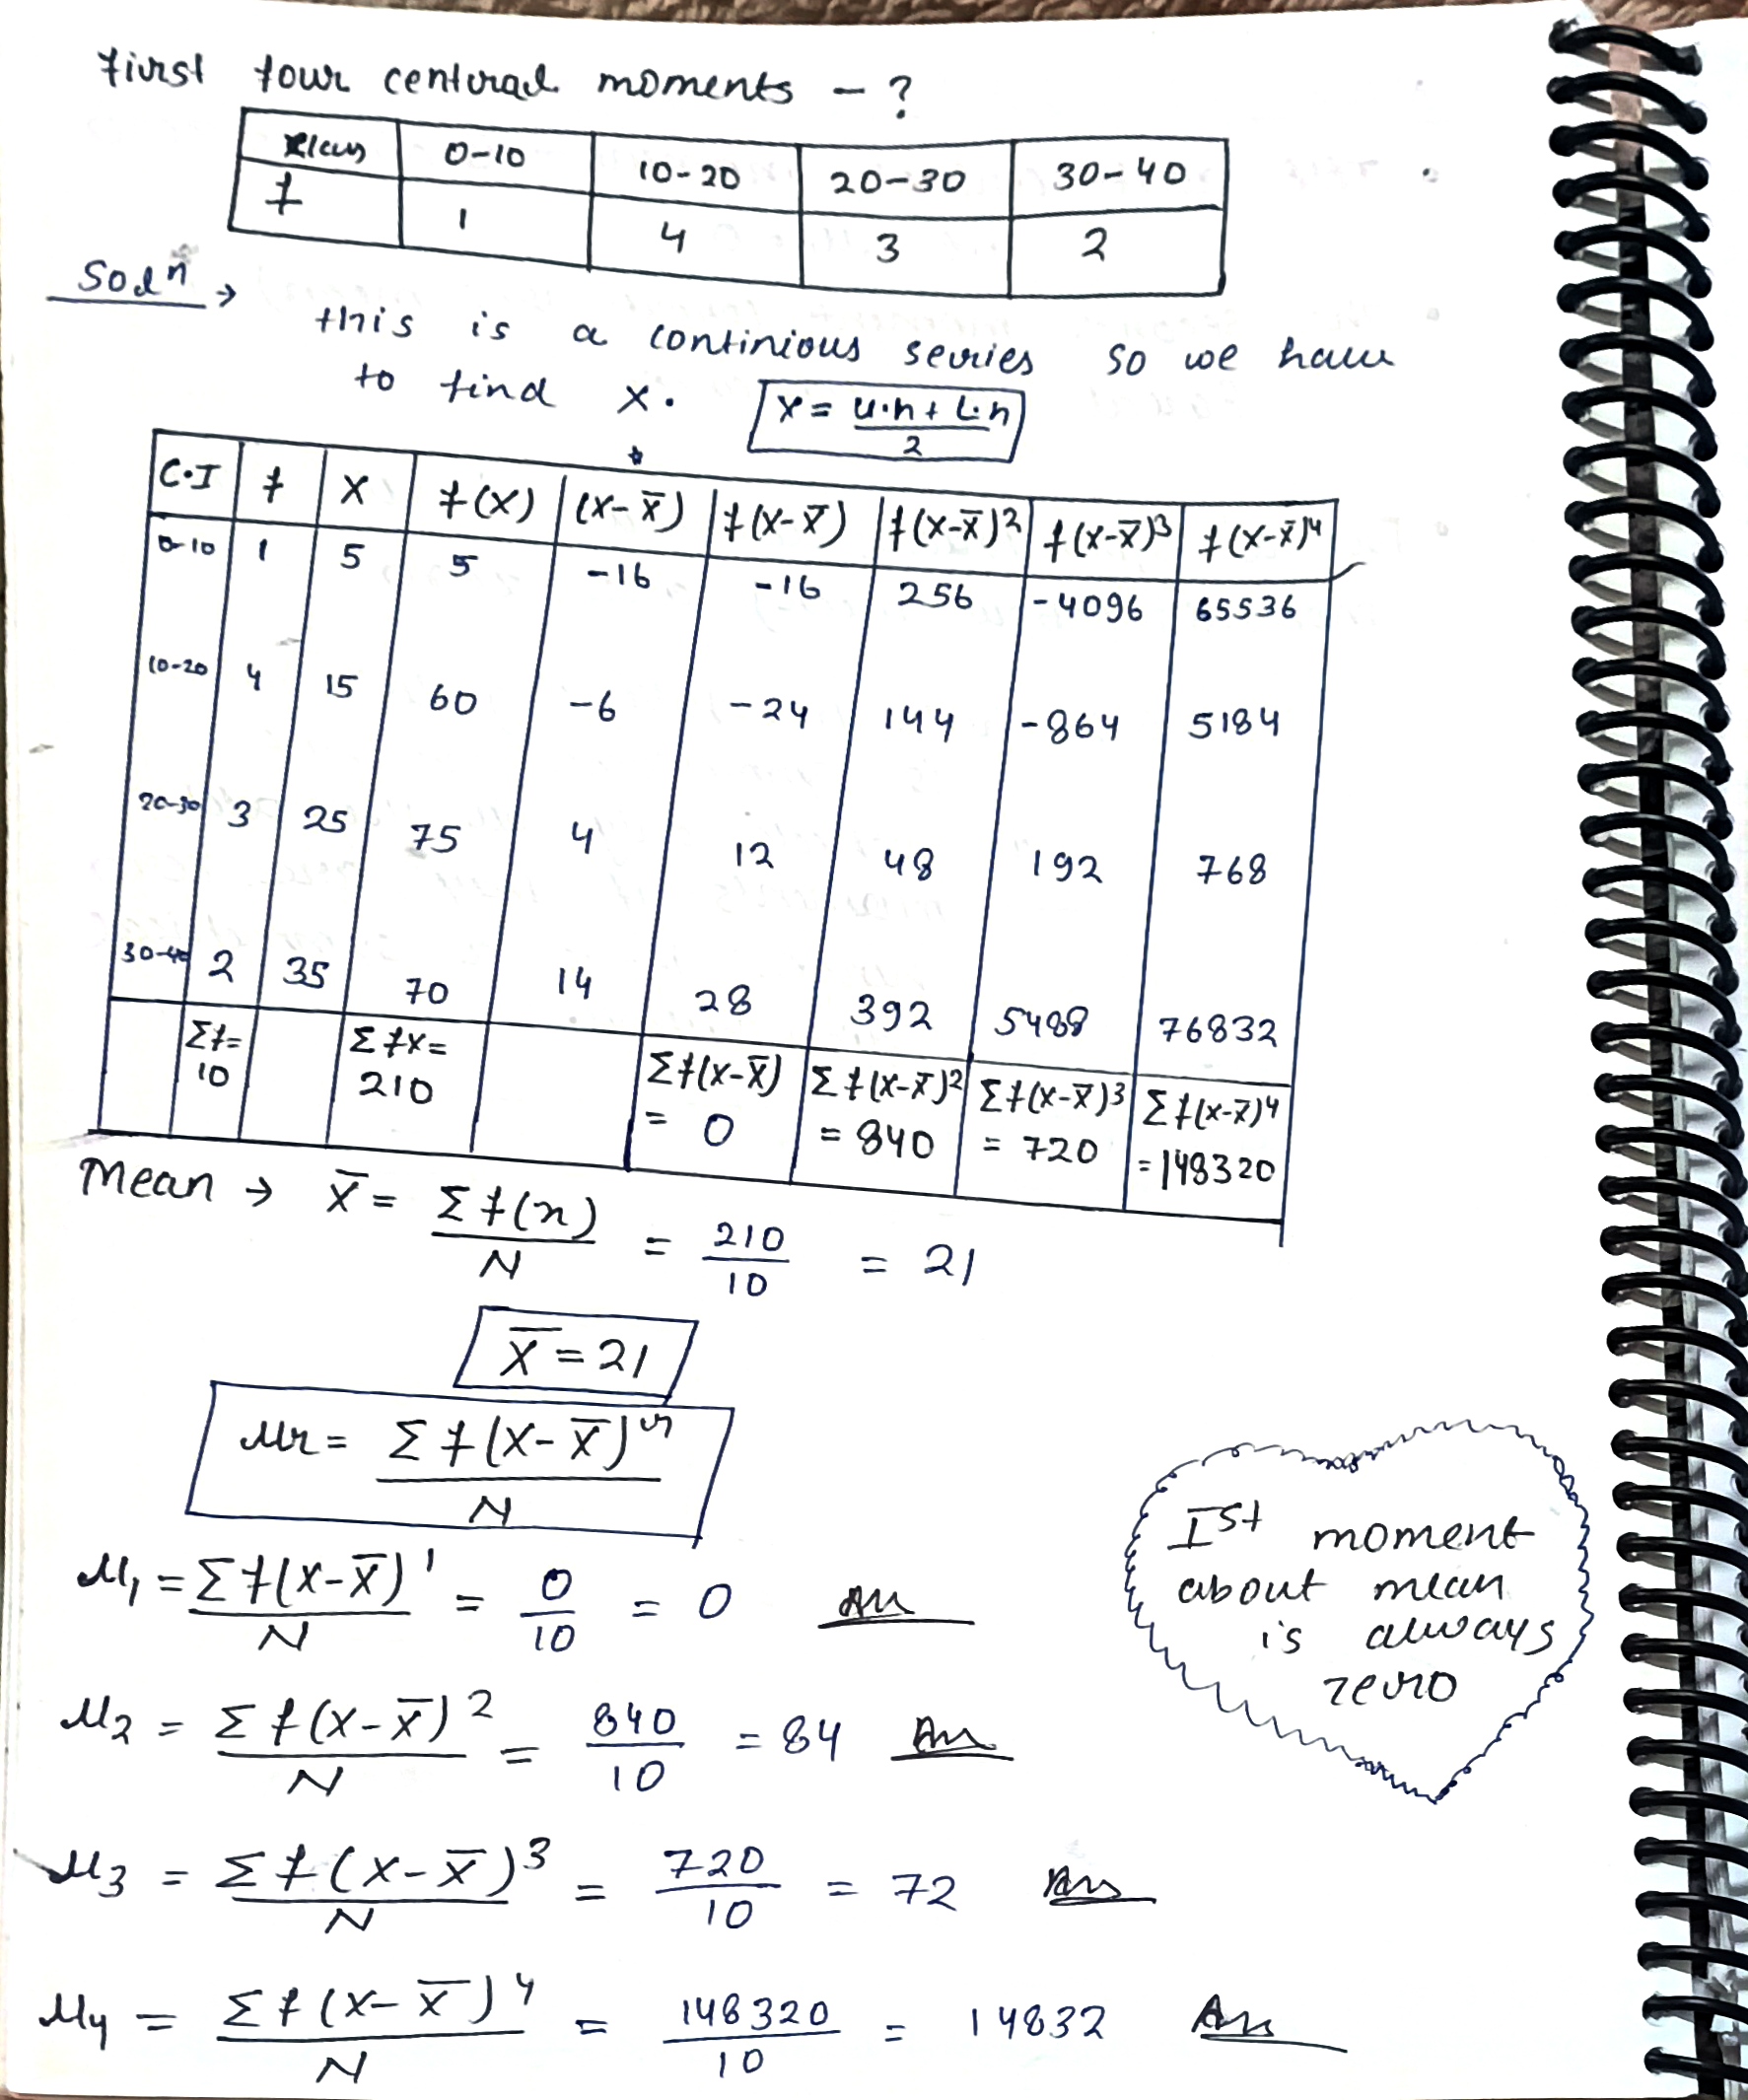 First four central moments - ?
Class 0-10 10-20 20-30 30-40
f 1 4 3 2
Solⁿ →
this is a continious series so we have
to find X. X = u.n + L.n / 2
C.I f X f(X) (X-X̅) f(X-X̅) f(X-X̅)² f(X-X̅)³ f(X-X̅)⁴
0-10 1 5 5 -16 -16 256 -4096 65536
10-20 4 15 60 -6 -24 144 -864 5184
20-30 3 25 75 4 12 48 192 768
30-40 2 35 70 14 28 392 5488 76832
Σf= 10 Σfx= 210 Σf(X-X̅) = 0 Σf(X-X̅)² = 840 Σf(X-X̅)³ = 720 Σf(X-X̅)⁴ = 148320
Mean → X̅ = Σf(x) / N = 210 / 10 = 21
X̅ = 21
μr = Σf(X-X̅)ʳ / N
μ₁ = Σf(X-X̅)¹ / N = 0 / 10 = 0 Ans
μ₂ = Σf(X-X̅)² / N = 840 / 10 = 84 Ans
μ₃ = Σf(X-X̅)³ / N = 720 / 10 = 72 Ans
μ₄ = Σf(X-X̅)⁴ / N = 148320 / 10 = 14832 Ans
Iˢᵗ moment
about mean
is always
zero